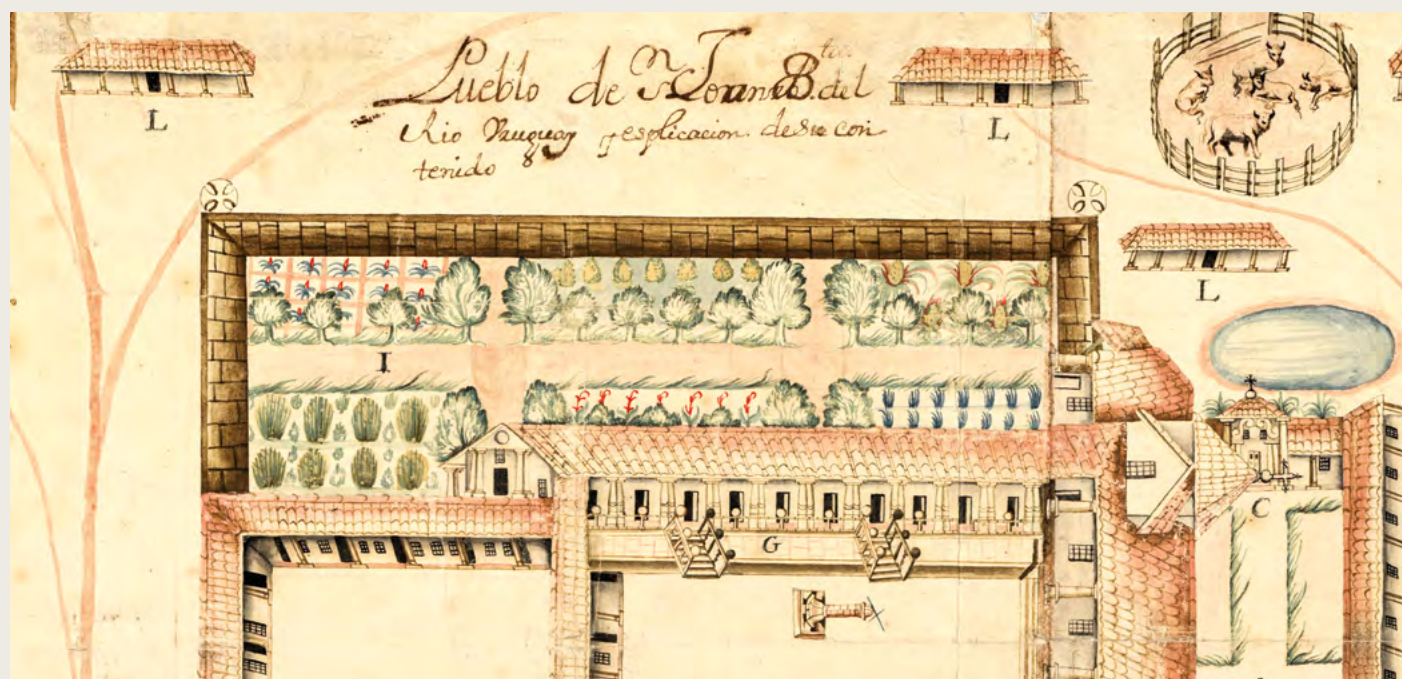 Pueblo de Sn Joan Bta. del
Rio Vruguay y esplicacion de su con
tenido
L
L
L
I
C
G